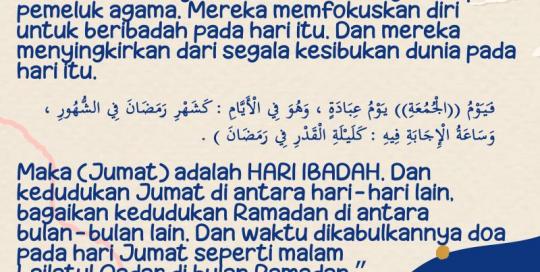 pemeluk agama. Mereka memfokuskan diri
untuk beribadah pada hari itu. Dan mereka
menyingkirkan dari segala kesibukan dunia pada
hari itu.
فَيَوْمُ ((الْجُمُعَةِ)) يَوْمُ عِبَادَةٍ ، وَهُوَ فِي الْأَيَّامِ : كَشَهْرِ رَمَضَانَ فِي الشُّهُورِ ،
وَسَاعَةُ الْإِجَابَةِ فِيهِ : كَلَيْلَةِ الْقَدْرِ فِي رَمَضَانَ ) .
Maka (Jumat) adalah HARI IBADAH. Dan
kedudukan Jumat di antara hari-hari lain,
bagaikan kedudukan Ramadan di antara
bulan-bulan lain. Dan waktu dikabulkannya doa
pada hari Jumat seperti malam
Lailatul Qadar di bulan Ramadan."